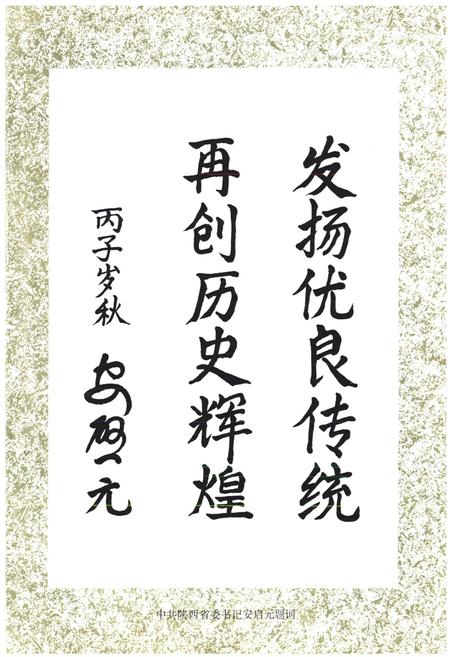 发扬优良传统
再创历史辉煌
丙子岁秋
安启元
中共陕西省委书记安启元题词